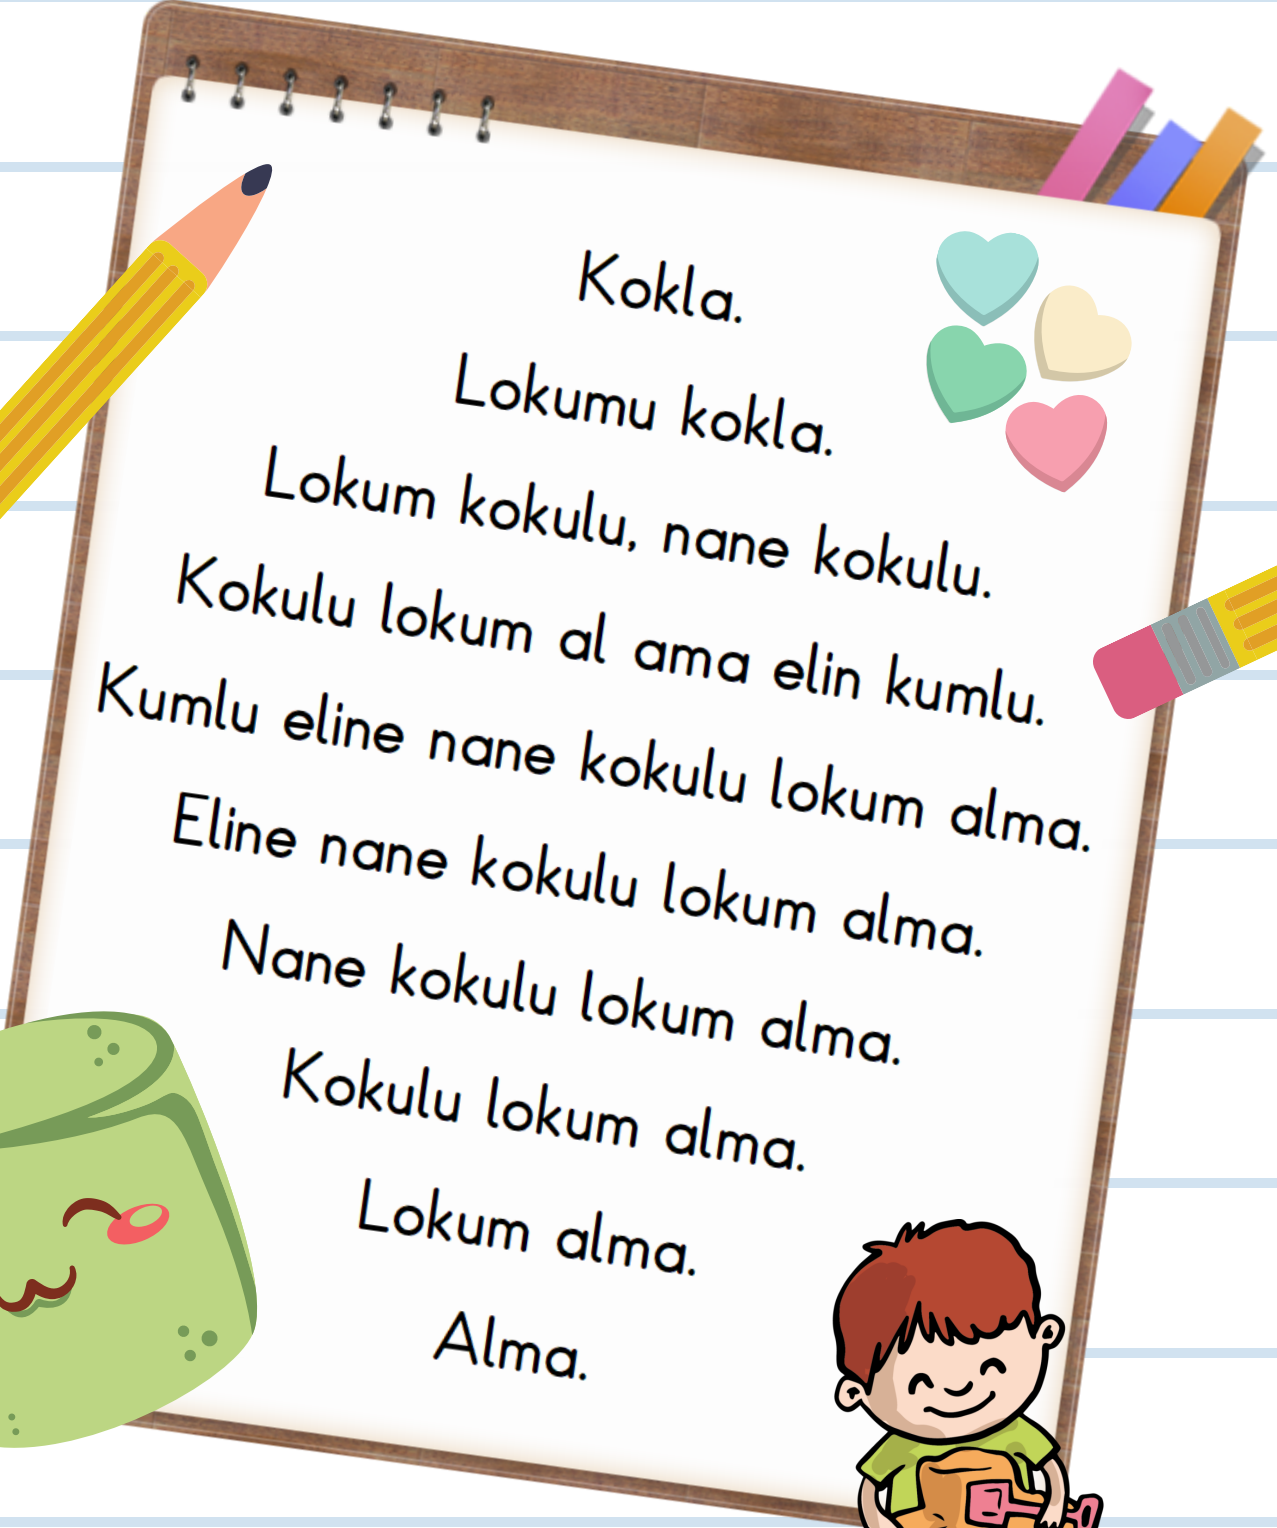 Kokla.
Lokumu kokla.
Lokum kokulu, nane kokulu.
Kokulu lokum al ama elin kumlu.
Kumlu eline nane kokulu lokum alma.
Eline nane kokulu lokum alma.
Nane kokulu lokum alma.
Kokulu lokum alma.
Lokum alma.
Alma.